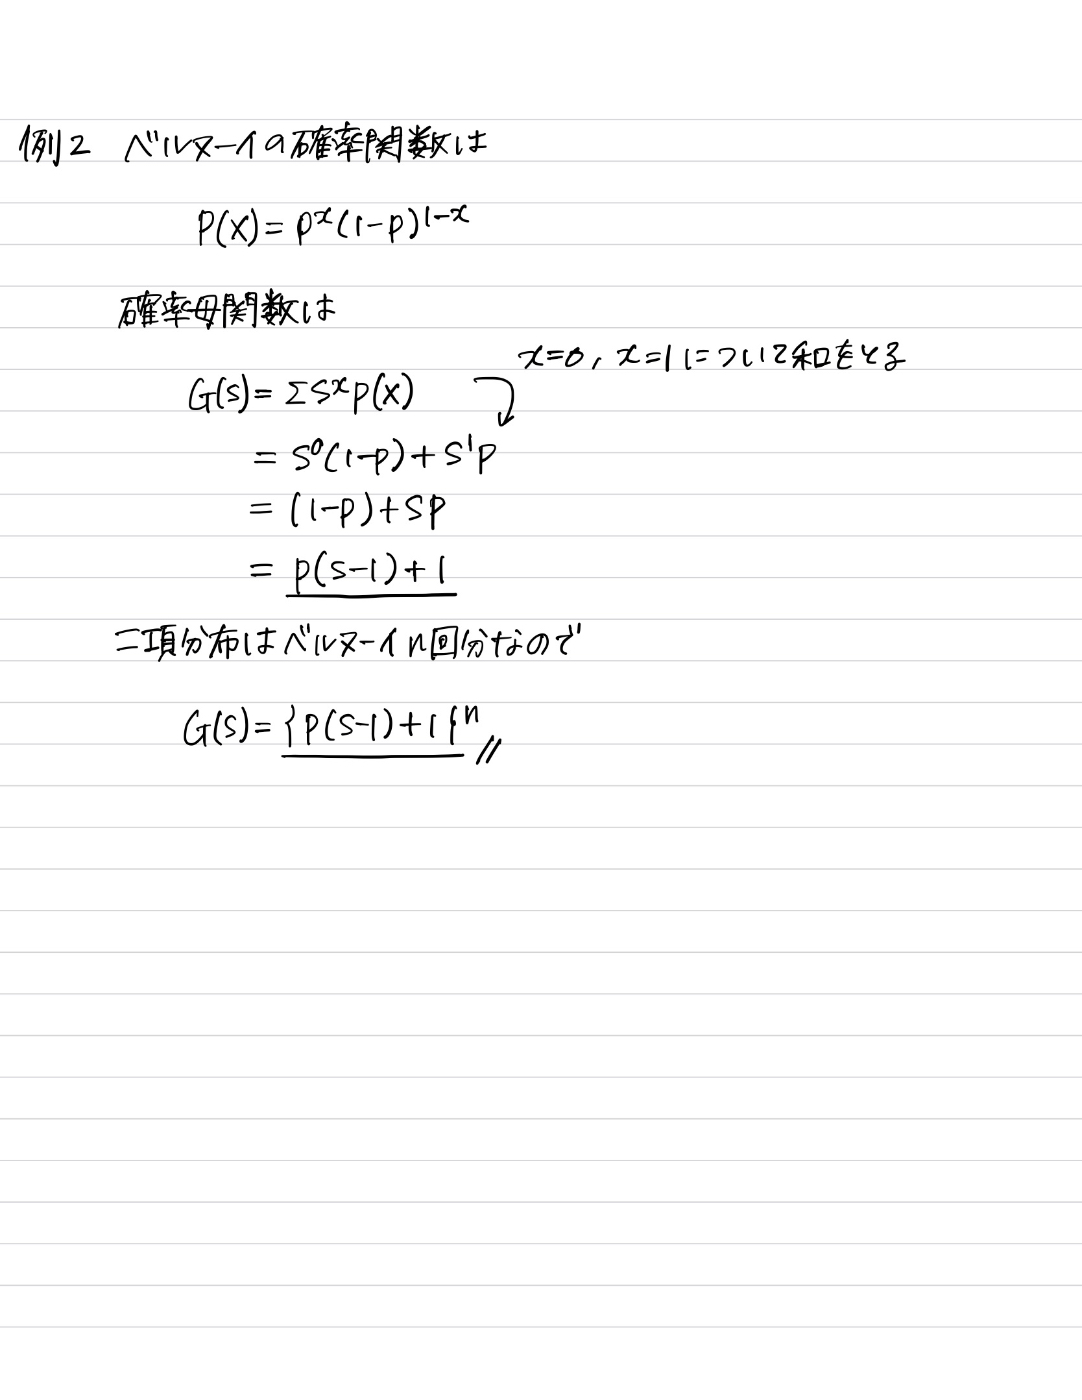 例2 ベルヌーイの確率関数は
P(x)=p^x(1-p)^{1-x}
確率母関数は
x=0, x=1について和をとる
G(s)=Σs^x p(x)
=s^0(1-p)+s^1p
=(1-p)+sp
=p(s-1)+1
二項分布はベルヌーイn回分なので
G(s)={p(s-1)+1}^n //